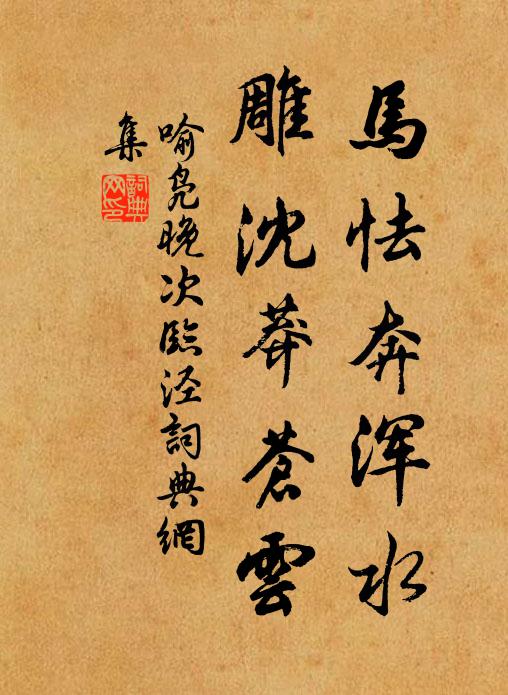 馬怯奔浑水
雕沈莽蒼雲
喻凫晚次臨泾詞典網
集
詞典
网印